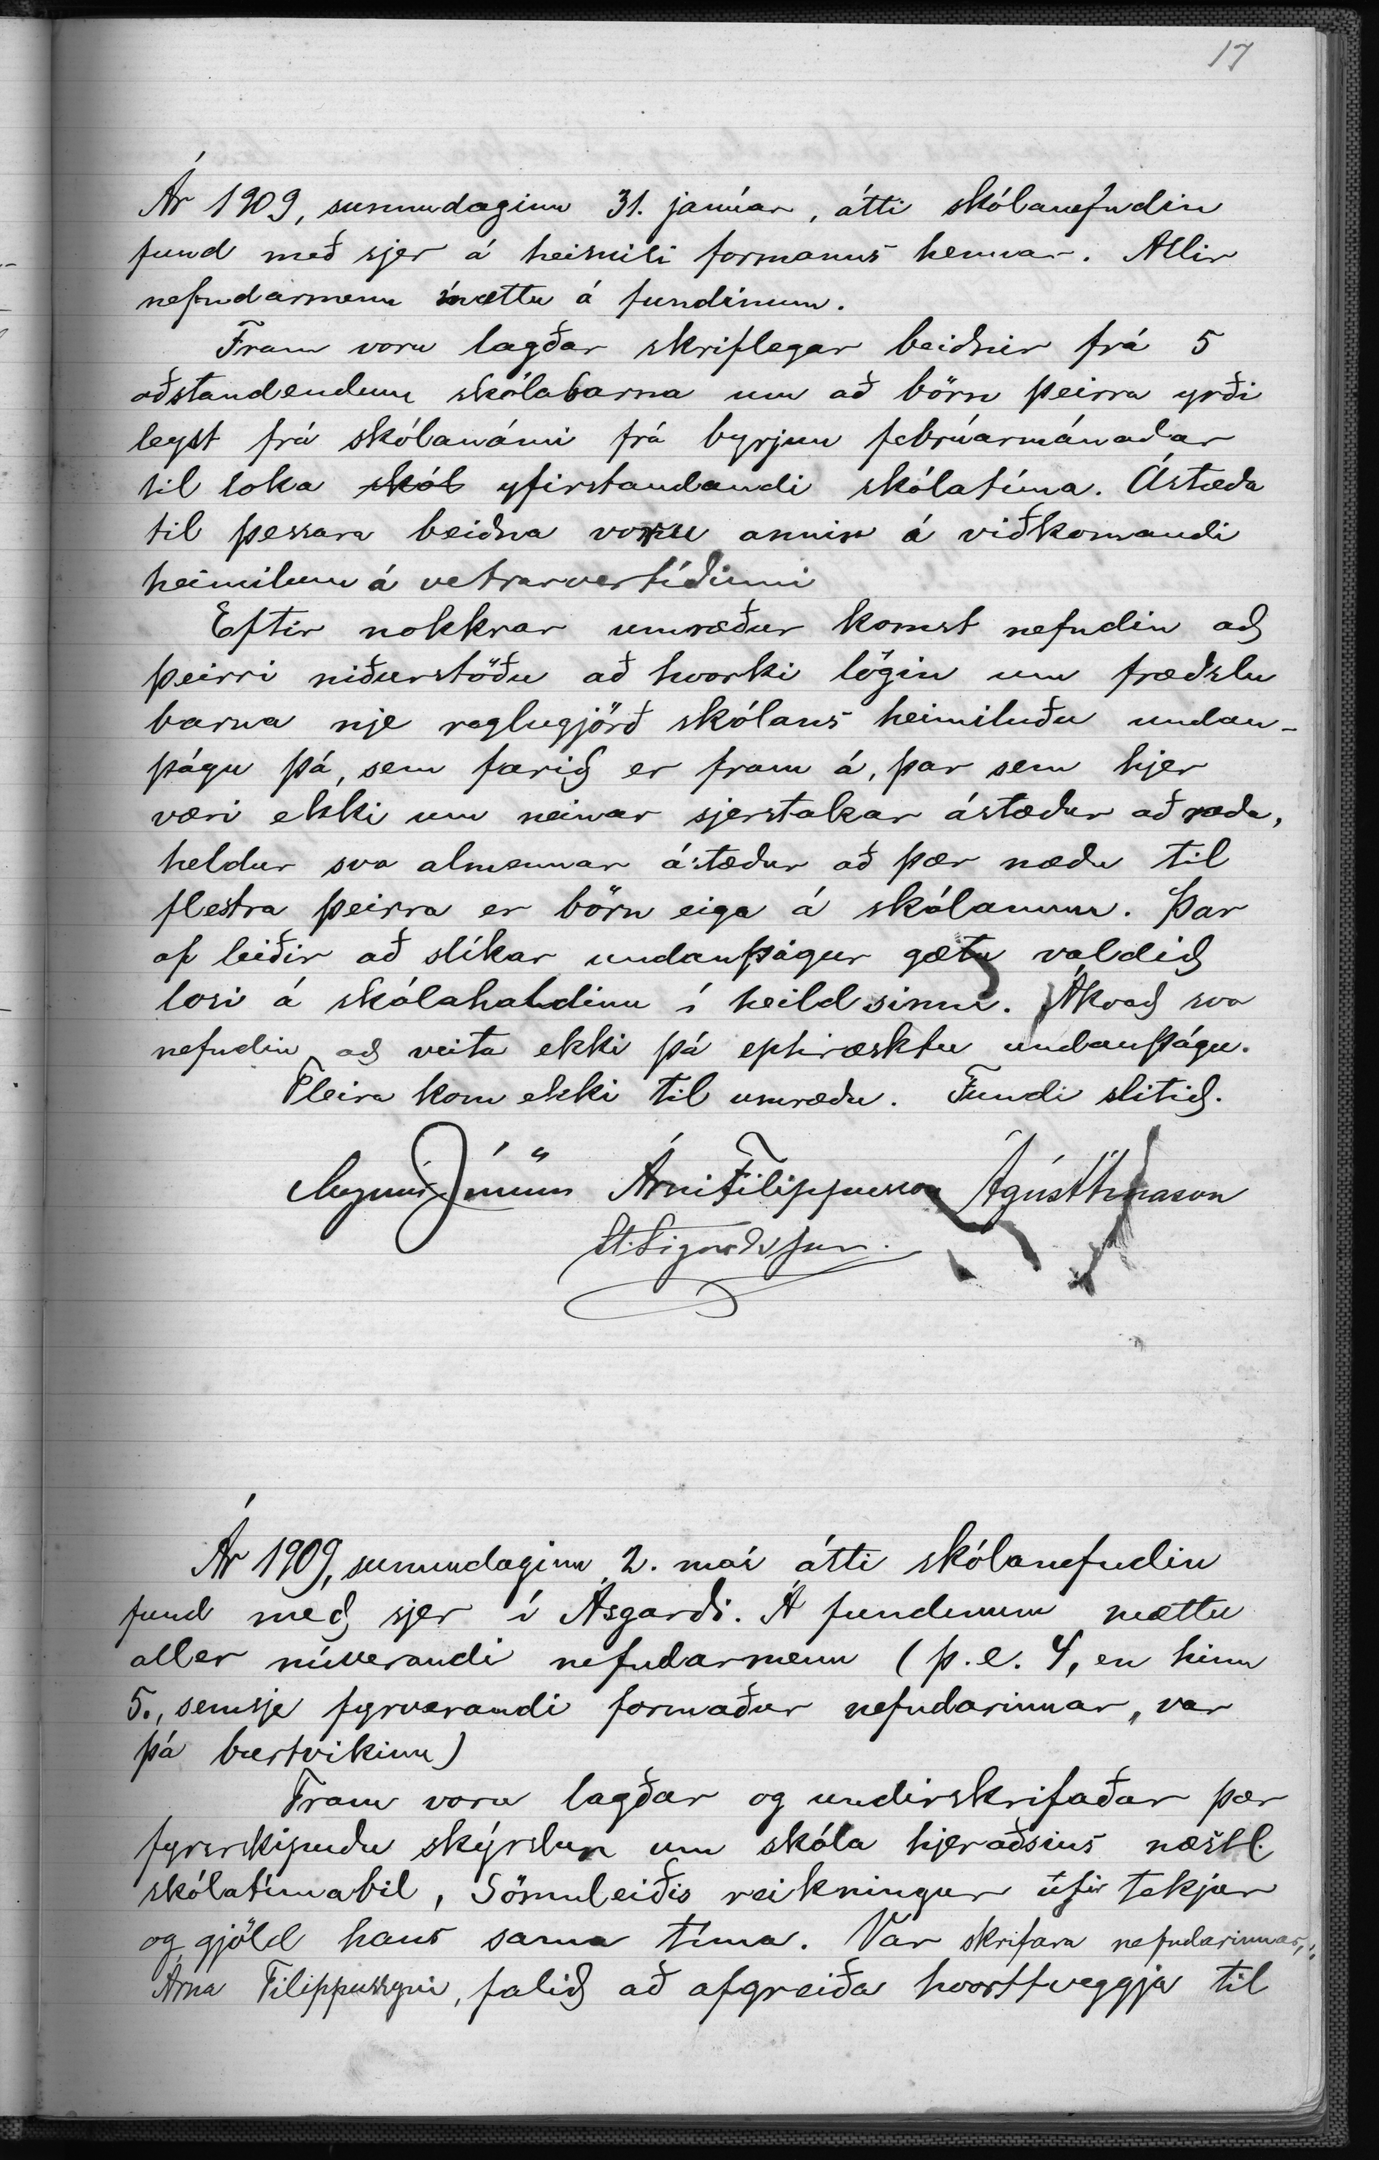 17
Ár 1909, sunnudaginn 31. janúar, átti skólanefndin
fund með sjer á heimili formanns hennar. Allir
nefndarmenn mættu á fundinum.
Fram voru lagðar skriflegar beiðnir frá 5
aðstandendum skólabarna um að börn þeirra yrði
leyst frá skólanámi frá byrjun febrúarmánaðar
til loka skól yfirstandandi skólatíma. Ástæða
til þessara beiðna voru annir á viðkomandi
heimilum á vetrarvertíðinni
Eftir nokkrar umræður komst nefndin að
þeirri niðurstöðu að hvorki lögin um fræðslu
barna nje reglugjörð skólans heimiluðu undan-
þágu þá, sem farið er fram á, þar sem hjer
væri ekki um neinar sjerstakar ástæður að ræða,
heldur svo almennar ástæður að þær næðu til
flestra þeirra er börn eiga á skólanum. Þar
af leiðir að slíkar undanþágur gætu valdið
losi á skólahaldinu í heild sinni. Ákvað svo
nefndin að veita ekki þá eptiræsktu undanþágu.
Fleira kom ekki til umræðu. Fundi slitið.
Magnús Jónsson Árni Filippusson Ágúst Árnason
St. Sigurðsson.
Ár 1909, sunnudaginn 2. maí átti skólanefndin
fund með sjer í Ásgarði. Á fundinum mættu
allir núverandi nefndarmenn (þ. e. 4, en hinn
5., semsje fyrverandi formaður nefndarinnar, var
þá burtvikinn)
Fram voru lagðar og undirskrifaðar þær
fyrirskipuðu skýrslur um skóla hjeraðsins næstl.
skólatímabil, sömuleiðis reikningur yfir tekjur
og gjöld hans sama tíma. Var skrifara nefndarinnar,
Árna Filippussyni, falið að afgreiða hvorttveggja til